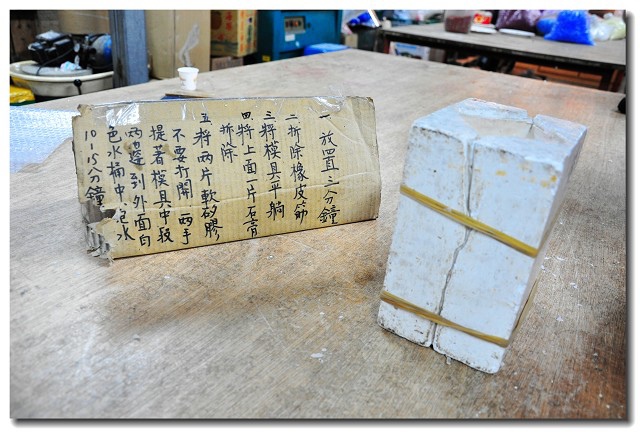 一 放置三分鐘
二 拆除橡皮筋
三 將模具平躺
四 將上面一片石膏
拆除
五 將兩片軟矽膠
不要打開 兩手
提著模具中段
兩邊到外面白
色水桶中泡水
10-15分鐘